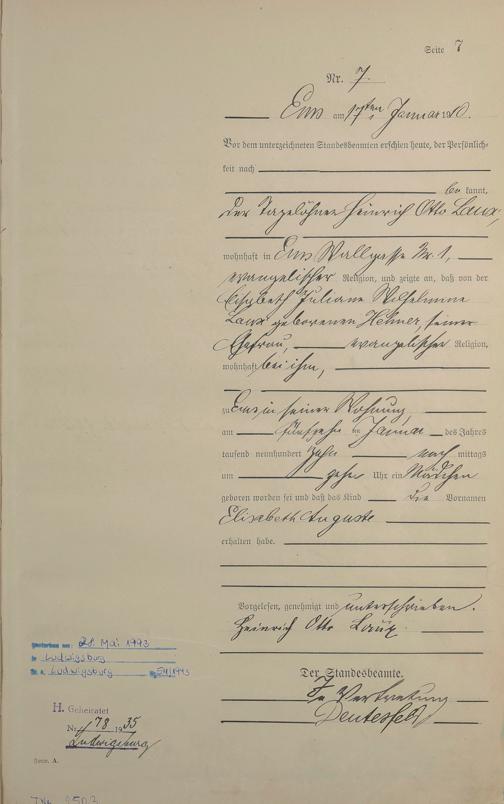 Seite 7
Nr. 7.
Ems am 17ten Januar 1910.
Vor dem unterzeichneten Standesbeamten erschien heute, der Persönlich-
keit nach
be kannt,
der Tagelöhner Heinrich Otto Laux,
wohnhaft in Ems Wallgasse Nr. 1,
evangelischer Religion, und zeigte an, daß von der
Elisabeth Juliane Wilhelmine
Laux geborenen Hehner, seiner
Ehefrau, evangelischer Religion,
wohnhaft bei ihm,
zu Ems in seiner Wohnung,
am fünfzehnten Januar des Jahres
tausend neunhundert zehn nach mittags
um zehn Uhr ein Mädchen
geboren worden sei und daß das Kind die Vornamen
Elisabeth Auguste
erhalten habe.
Vorgelesen, genehmigt und unterschrieben.
Heinrich Otto Laux.
Der Standesbeamte.
In Vertretung
gestorben am: 28. Mai 1993
in Ludwigsburg
Ludwigsburg
H. Geheiratet
Nr. 178 1935
Ludwigsburg
Form. A.